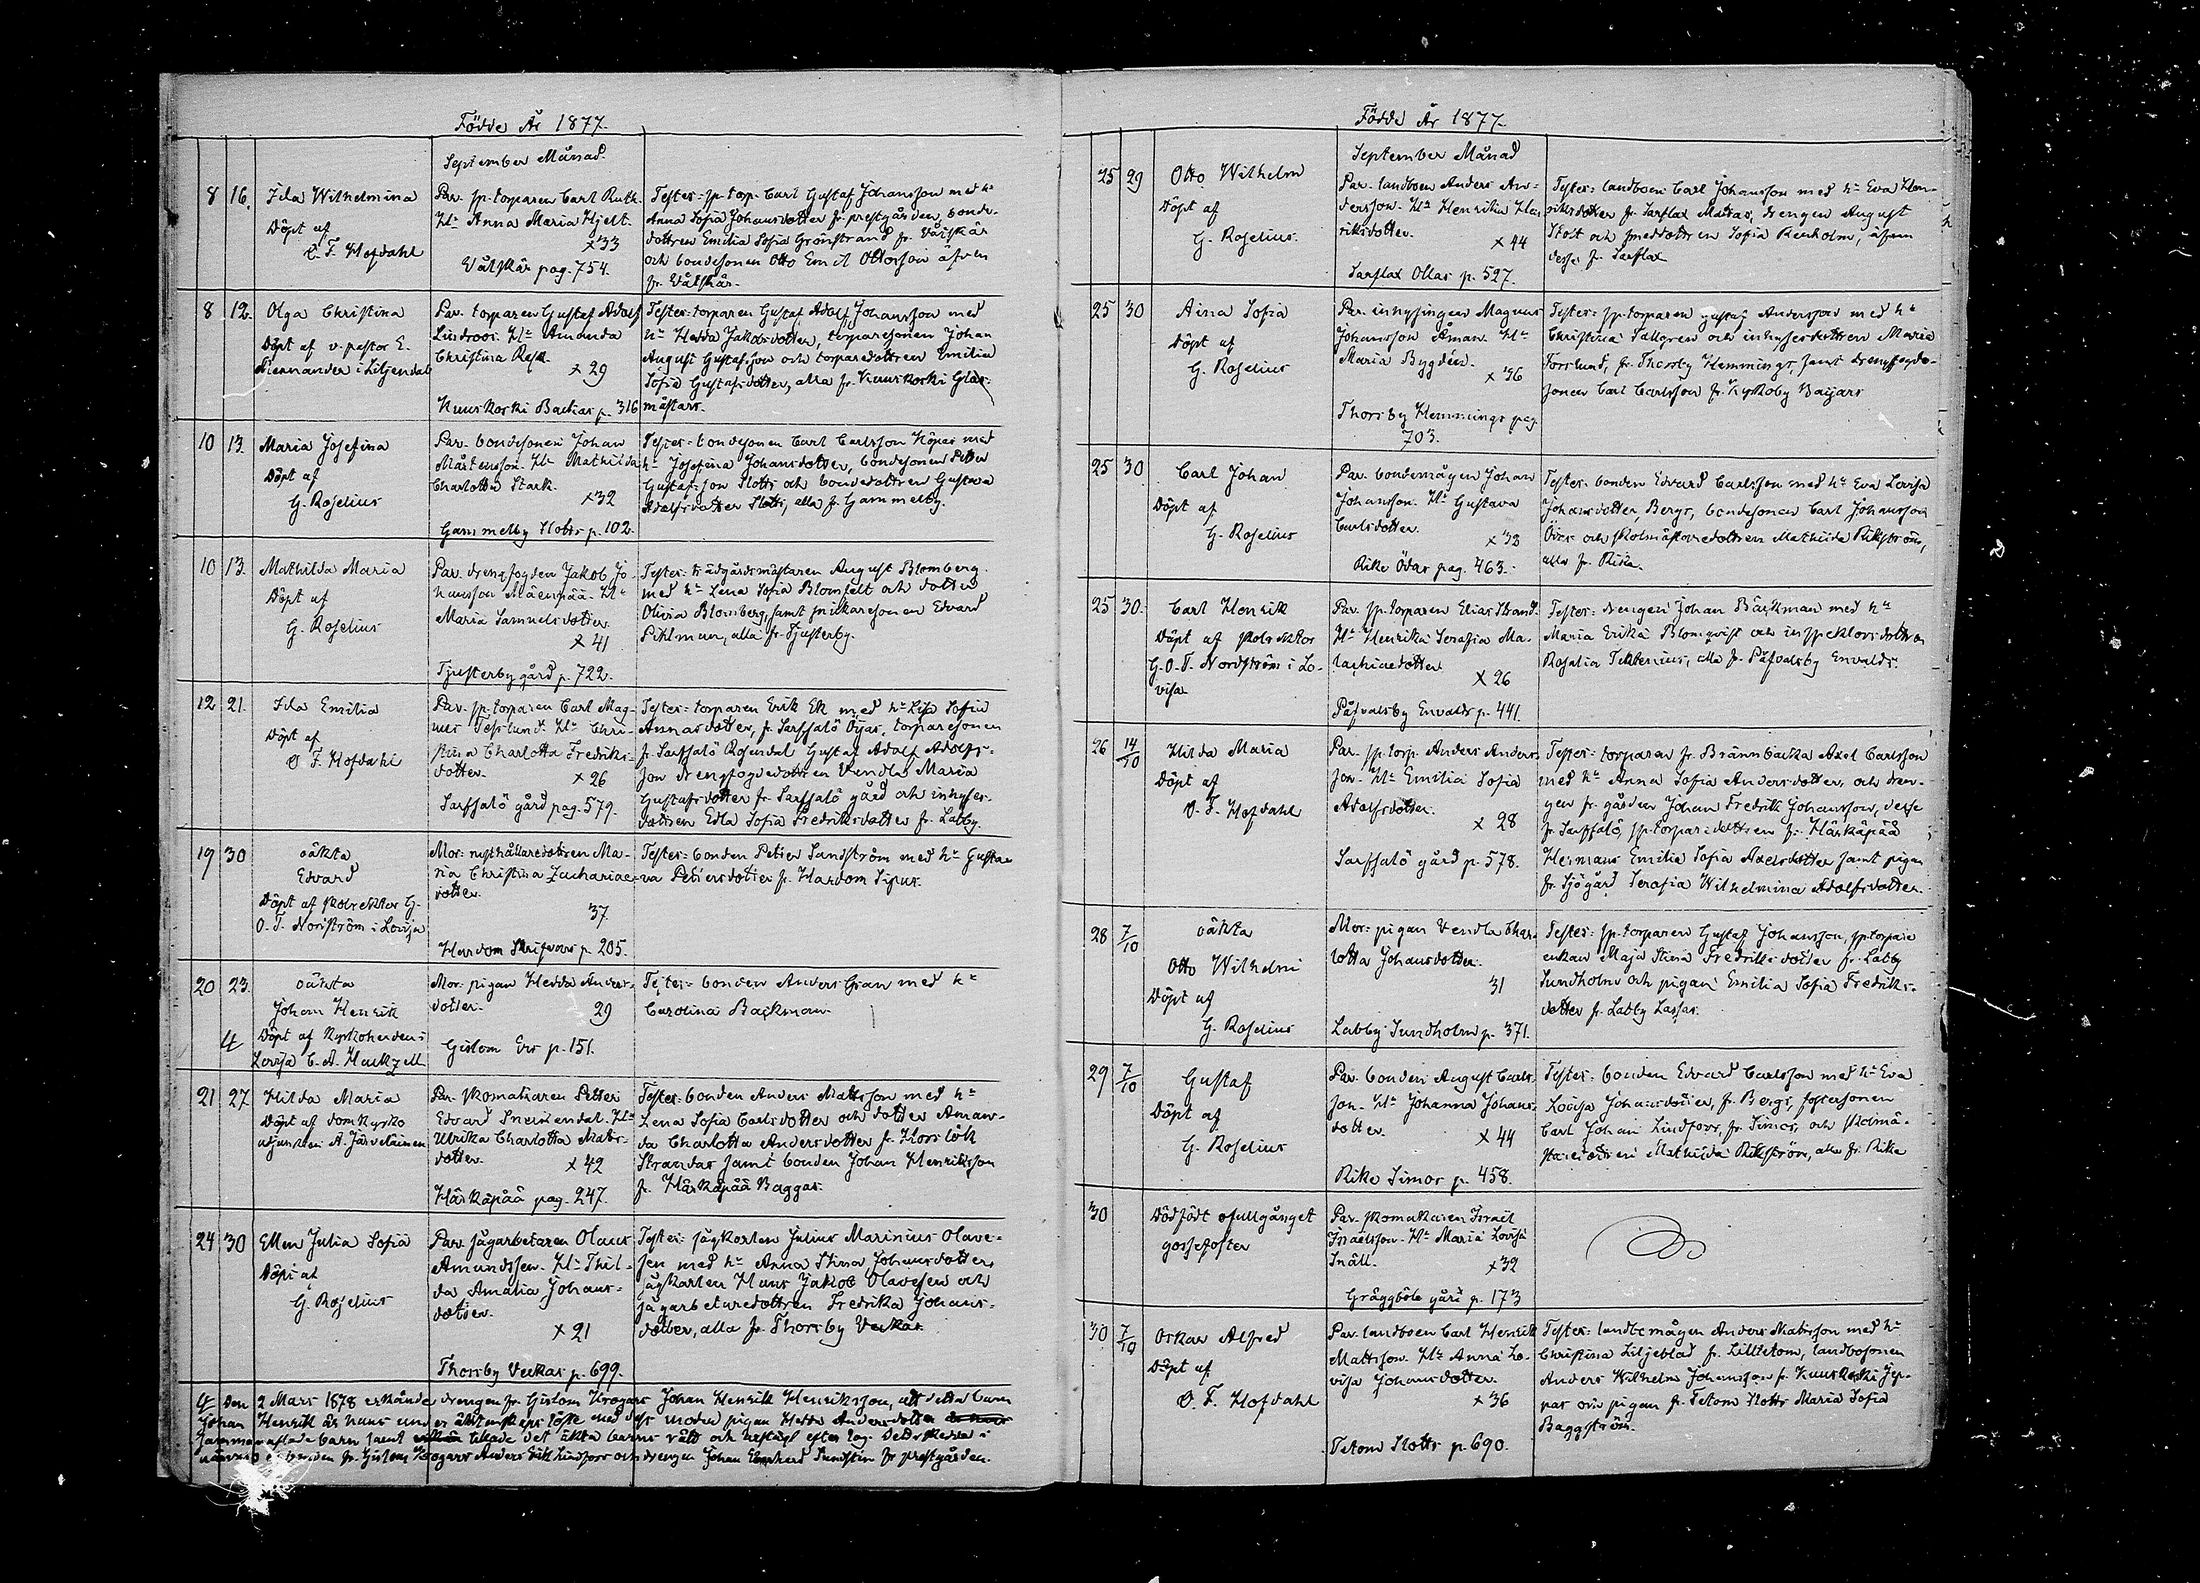 Födde År 1877.
September Månad.
8 16. Ida Wilhelmina
Döpt af
O. F. Hofdahl
Par. sp. torparen Carl Ruth.
H:u Anna Maria Hjelt.
x 33
Våtskär pag. 754.
Tester: sp. torp. Carl Gustaf Johansson med h:u
Anna Sofia Johansdotter fr. prestgården, bonde-
dottren Emilia Sofia Grönstrand fr. Våtskär
och bondesonen Otto Emil Ottosson äfven
fr. Våtskär.
8 12. Olga Christina
Döpt af v. pastor E.
Fernander i Liljendal
Par. torparen Gustaf Adolf
Lindroos. H:u Amanda
Christina Rask.
x 29
Kuuskoski Backas p. 316
Tester: torparen Gustaf Adolf Johansson med
h:u Hedda Jakobsdotter, torparesonen Johan
August Gustafsson och torparedottren Emilia
Sofia Gustafsdotter, alla fr. Kuuskoski Glas-
mästars.
10 13. Maria Josefina
Döpt af
G. Roselius
Par. bondesonen Johan
Mårtensson. H:u Mathilda
Charlotta Stark.
x 32
Gammelby Slotts p. 102.
Tester: bondesonen Carl Carlsson Köpas med
h:u Josefina Johansdotter, bondesonen Petter
Gustafsson Slotts och bondedottren Gustava
Adolfsdotter Slotts, alla fr. Gammelby.
10 13. Mathilda Maria
Döpt af
G. Roselius
Par. drengfogden Jakob Jo-
hansson Mäenpää. H:u
Maria Samuelsdotter
x 41
Tjusterby gård p. 722.
Tester: trädgårdsmästaren August Blomberg
med h:u Lena Sofia Blomfelt och dotter
Olivia Blomberg, samt pilkaresonen Edvard
Pihlman, alla fr. Tjusterby.
12 21. Ida Emilia
Döpt af
O. F. Hofdahl
Par. sp. torparen Carl Mag-
nus Teslund. H:u Chri-
stina Charlotta Fredriks-
dotter.
x 26
Sarfsalö gård pag. 579.
Tester: torparen Erik Ek med h:u Lisa Sofia
Annasdotter, fr. Sarfsalö Öjas, torparesonen
fr. Sarfsalö Rosendal Gustaf Adolf Adolfs-
son drengfogdedottren Vendla Maria
Gustafsdotter fr. Sarfsalö gård och inhyses-
dottren Edla Sofia Fredriksdotter fr. Labby.
19 30 oäkta
Edvard
Döpt af skolrektor G.
O. T. Nordström i Lovisa
Mor: rusthållaredottren Ma-
ria Christina Zachariae-
dotter.
37
Hardom Skrifvars p. 205.
Tester: bonden Petter Sandström med h:u Gusta-
va Pettersdotter fr. Hardom Sipus.
20 23. oäkta
Johan Henrik
4 Döpt af kyrkoherden i
Lovisa C. A. Hackzell
Mor. pigan Hedda Anders-
dotter.
29
Gislom Ers p. 151.
Tester: bonden Anders Gran med h:u
Carolina Backman.
21 27. Hilda Maria
Döpt af domkyrko
adjunkten A. Järveläinen
Par. skomakaren Petter
Edvard Snellendal. H:u
Ulrika Charlotta Mats-
dotter.
x 42
Härkäpää pag. 247.
Tester: bonden Anders Mattsson med h:u
Lena Sofia Carlsdotter och dotter Aman-
da Charlotta Andersdotter fr. Horslök
Strandas samt bonden Johan Henriksson
fr. Härkäpää Baggas.
24 30 Ellen Julia Sofia
Döpt af
G. Roselius
Par. sågarbetaren Olaus
Amundssen. H:u Thil-
da Amalia Johans-
dotter.
x 21
Thorsby Veckas p. 699.
Tester: sågkarlen Julius Marinius Olave-
sen med h:u Anna Stina Johansdotter,
sågkarlen Hans Jakob Olavesen och
sågarbetaredottren Fredrika Johans-
dotter, alla fr. Thorsby Veckas.
4 Den 2 Mars 1878 erkände drengen fr. Gislom Krogars Johan Henrik Henriksson, att detta barn
Johan Henrik är hans under äktenskaps löfte med dess moder pigan Hedda Andersdotter
sammanaflade barn samt tillade det äkta barns rätt och arfslagt efter lag. Detta skedde i
närvaro af bonden fr. Gislom Krogars Anders Erik Lindfors och drengen Johan Sundstin fr. prestgården.
Födde År 1877.
September Månad
25 29 Otto Wilhelm
Döpt af
G. Roselius.
Par. landboen Anders An-
dersson. H:u Henrika Hen-
riksdotter.
x 44
Sarflax Ollas p. 527.
Tester: landboen Carl Johansson med h:u Eva Hen-
riksdotter fr. Sarflax Mattas, drengen August
Stolt och smeddottren Sofia Renholm, äfven
desse fr. Sarflax
25 30 Aina Sofia
Döpt af
G. Roselius
Par. inhysingen Magnus
Johansson Åman. H:u
Maria Bygdén.
x 36
Thorsby Hemmings pag.
703.
Tester: sp. torparen Gustaf Andersson med h:u
Christina Tallgren och inhysesdottren Maria
Forslund, fr. Thorsby Hemmings, samt drengfogde-
sonen Carl Carlsson fr. Kyrkoby Baijars
25 30 Carl Johan
Döpt af
G. Roselius
Par. bondemågen Johan
Johansson. H:u Gustava
Carlsdotter.
x 32
Rike Ödas pag. 463.
Tester: bonden Edvard Carlsson med h:u Eva Lovisa
Johansdotter, Bergs, bondesonen Carl Johansson
Övers och skolmästaredottren Mathilda Rikström,
alla fr. Rike.
25 30. Carl Henrik
Döpt af skolrektor
G. O. T. Nordström i Lo-
visa
Par. sp. torparen Elias Strand.
H:u Henrika Serafia Ma-
lachiaedotter
x 26
Påfvalsby Envalds p. 441.
Tester: drengen Johan Bäckman med h:u
Maria Erika Blomqvist och inspektorsdottren
Rosalia Tekterius, alla fr. Påfvalsby Envalds.
26 14/10 Hilda Maria
Döpt af
O. F. Hofdahl
Par. sp. torp. Anders Anders-
son. H:u Emilia Sofia
Adolfsdotter.
x 28
Sarfsalö gård p. 578.
Tester: torparen fr. Brännbacka Axel Carlsson
med h:u Anna Sofia Andersdotter, och dren-
gen fr. gården Johan Fredrik Johansson, desse
fr. Sarfsalö, sp. torparedottren fr. Härkäpää
Hermans Emilia Sofia Axelsdotter samt pigan
fr. Sjögård Serafia Wilhelmina Adolfsdotter.
28 7/10 oäkta
Otto Wilhelm
Döpt af
G. Roselius
Mor: pigan Vendla Char-
lotta Johansdotter.
31
Labby Sundholm p. 371.
Tester: sp. torparen Gustaf Johansson, sp. torpare
enkan Maja Stina Fredriksdotter fr. Labby
Sundholm och pigan Emilia Sofia Fredriks-
dotter fr. Labby Lassas.
29 7/10 Gustaf
Döpt af
G. Roselius
Par. bonden August Carls-
son. H:u Johanna Johans-
dotter.
x 44
Rike Simos p. 458.
Tester: bonden Edvard Carlsson med h:u Eva
Lovisa Johansdotter, fr. Bergs, fostersonen
Carl Johan Lindfors, fr. Simos, och skolmä-
staredottren Mathilda Rikström, alla fr. Rike
30 Dödfödt ofullgånget
gossefoster
Par. skomakaren Israel
Israelsson. H:u Maria Lovisa
Snäll.
x 32
Gräggböle gård p. 173
30. 7/10 Oskar Alfred
Döpt af
O. F. Hofdahl
Par. landboen Carl Henrik
Mattsson. H:u Anna Lo-
visa Johansdotter.
x 36
Tetom Slotts p. 690.
Tester: landbomågen Anders Mattsson med h:u
Christina Liljeblad fr. Lilltetom, landbosonen
Anders Wilhelm Johansson fr. Kuuskoski Jep-
pas och pigan fr. Tetom Slotts Maria Sofia
Baggström.